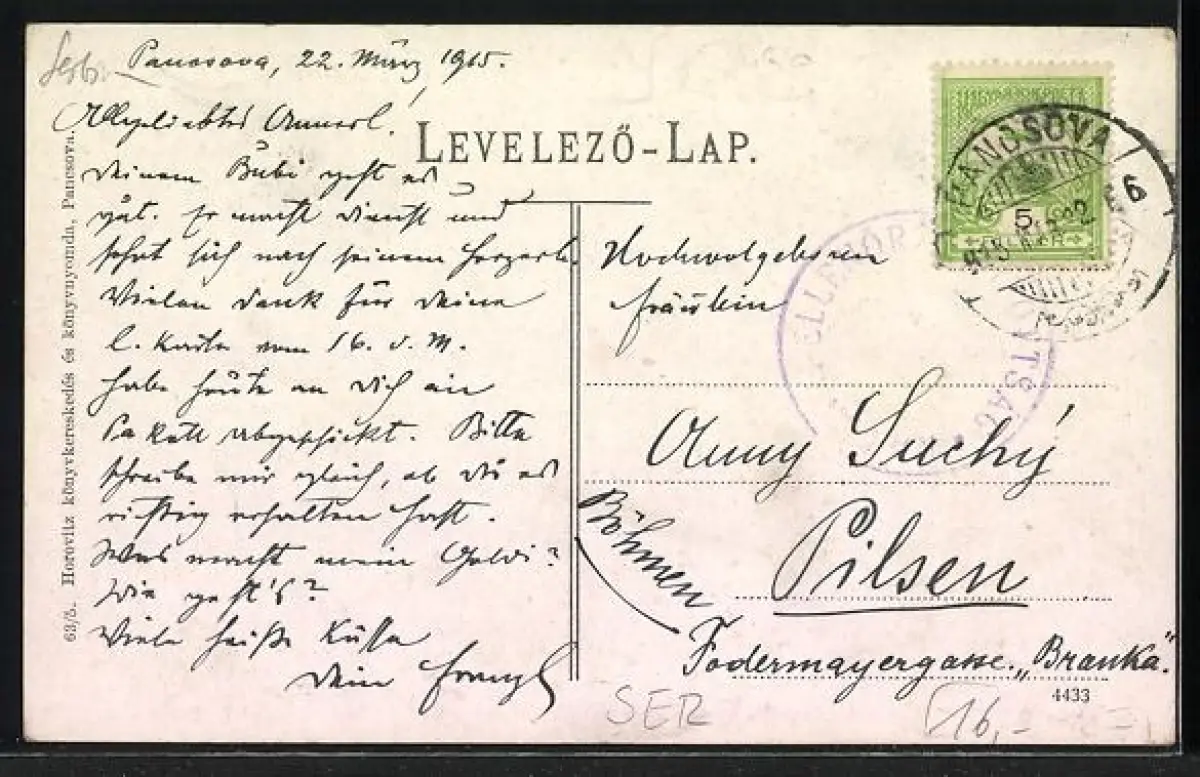 Serbien
Pancsova, 22. März 1915.
Allerliebstes Annerl!
Deinem Bubi geht es
gut. Er macht Dienst und
sehnt sich nach seinem Herzerl.
Vielen Dank für Deine
l. Karte vom 16. d. M.
Habe heute an Dich ein
Pakett abgeschickt. Bitte
schreibe mir gleich, ob Du es
richtig erhalten hast.
Was macht mein Goldi?
Wie geht's?
Viele heiße Küsse
Dein Franzl
63/5. Horovitz könyvkereskedés és könyvnyomda, Pancsova.
LEVELEZŐ-LAP.
MAGYAR KIR. POSTA
5
PANCSOVA
915
6
ELLENŐR
Hochwolgeboren
Fräulein
Anny Suchý
Pilsen
Böhmen
Fodermayergasse „Branka“.
4433
SER
16,-